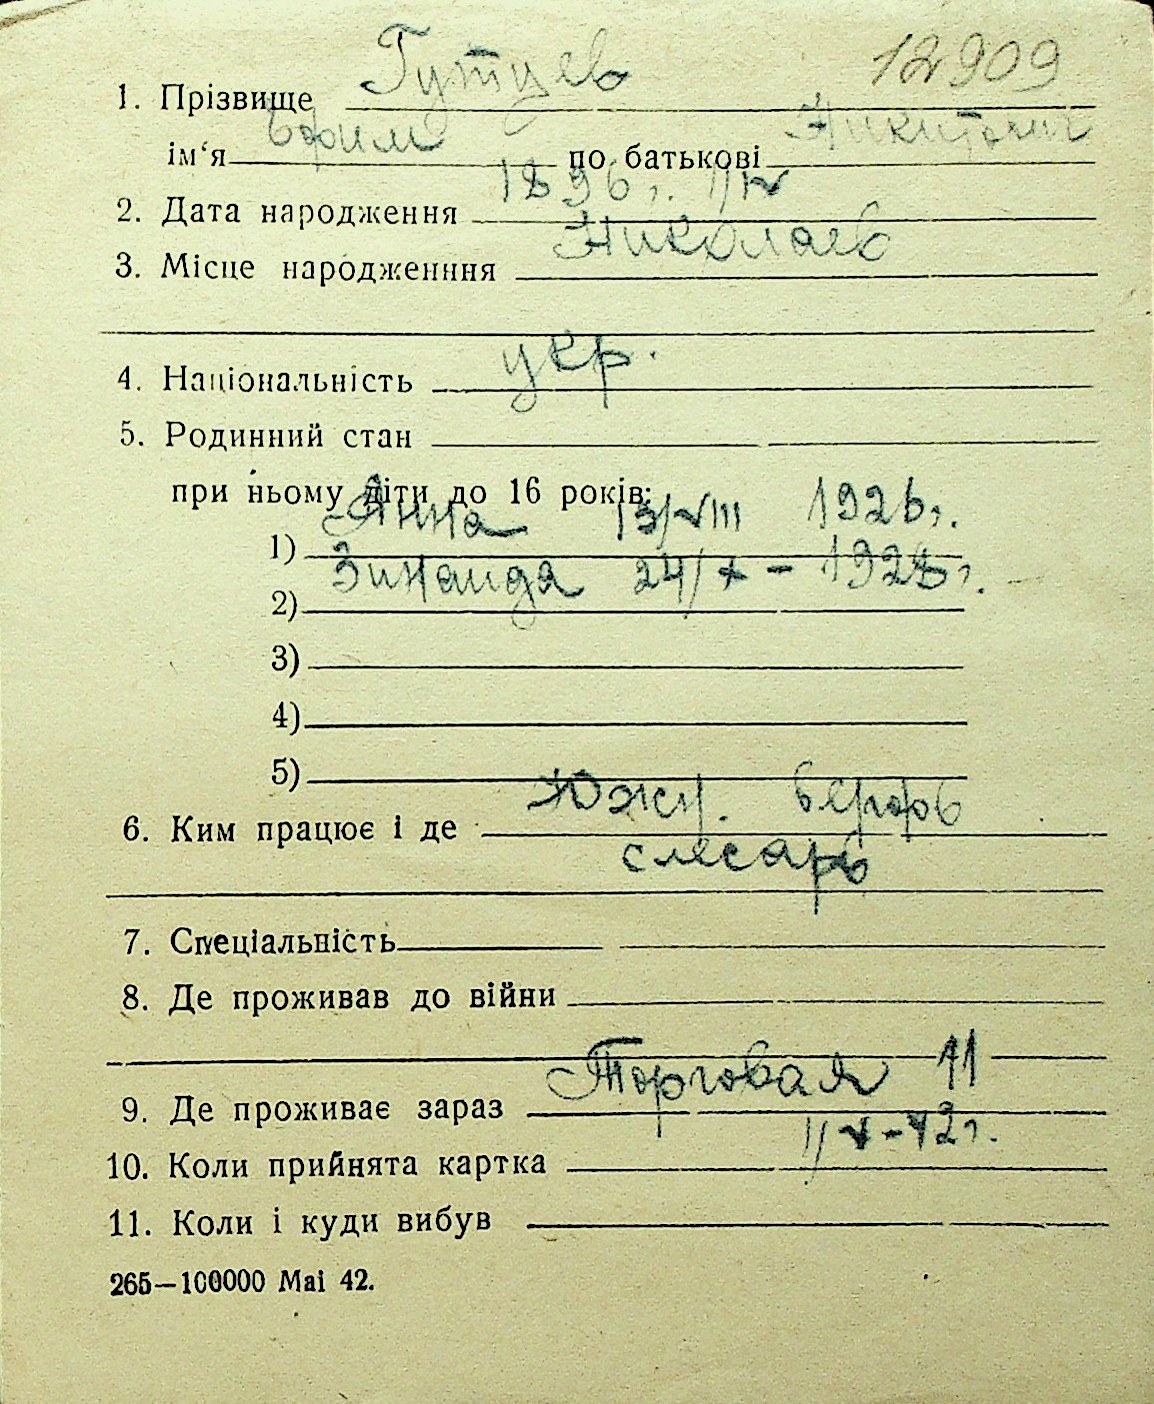 12909
1. Прізвище Гутцев
ім‘я Ефим по батькові Никитович
2. Дата народження 1896 г. 1/IV
3. Місце народженння Николаев
4. Національність укр.
5. Родинний стан
при ньому діти до 16 років:
1) Анна 13/VIII 1926 г.
2) Зинаида 24/X - 1928 г.
3)
4)
5)
6. Ким працює і де Южн. верфь
слесарь
7. Спеціальність
8. Де проживав до війни
9. Де проживає зараз Торговая 11
10. Коли прийнята картка - 42 г.
11. Коли і куди вибув
265—100000 Маі 42.